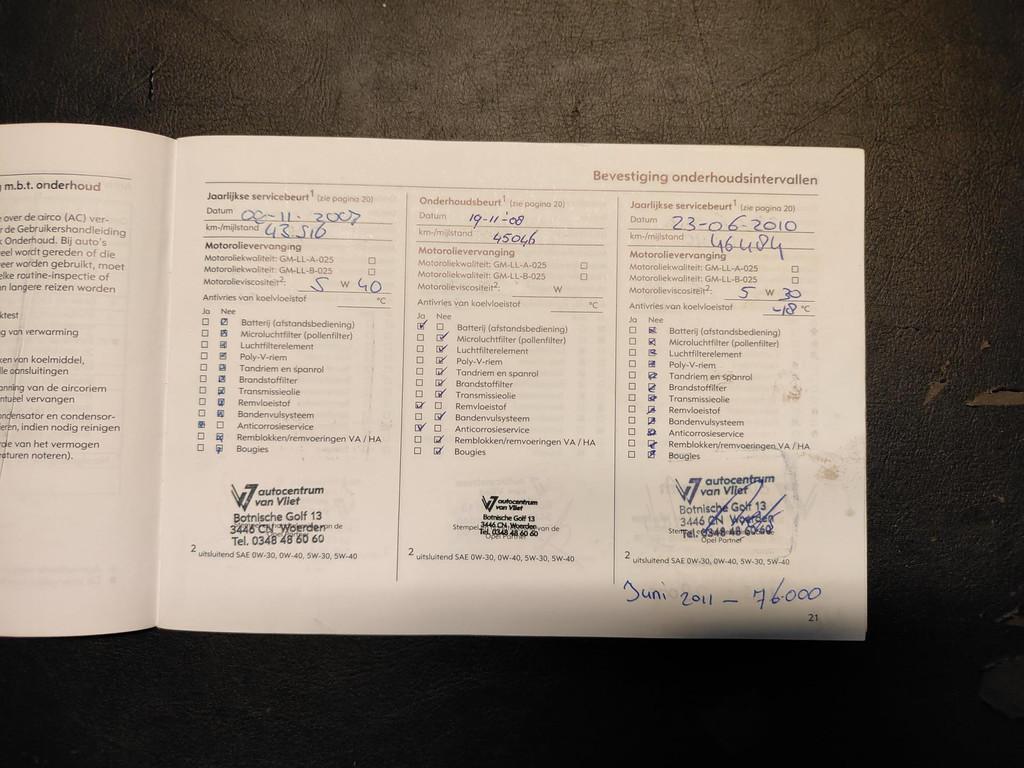 m.b.t. onderhoud
over de airco (AC) ver-
r de Gebruikershandleiding
Onderhoud. Bij auto's
eel wordt gereden of die
eer worden gebruikt, moet
elke routine-inspectie of
n langere reizen worden
ktest
g van verwarming
ken van koelmiddel,
lle aansluitingen
anning van de aircoriem
ntueel vervangen
ondensator en condensor-
ieren, indien nodig reinigen
rde van het vermogen
raturen noteren).
Bevestiging onderhoudsintervallen
Jaarlijkse servicebeurt¹ (zie pagina 20)
Datum 2007
km-/mijlstand 43.516
Motorolievervanging
Motoroliekwaliteit: GM-LL-A-025 ☐
Motoroliekwaliteit: GM-LL-B-025 ☐
Motorolieviscositeit²: 5 W 40
Antivries van koelvloeistof °C
Ja Nee
Batterij (afstandsbediening)
Microluchtfilter (pollenfilter)
Luchtfilterelement
Poly-V-riem
Tandriem en spanrol
Brandstoffilter
Transmissieolie
Remvloeistof
Bandenvulsysteem
Anticorrosieservice
Remblokken/remvoeringen VA / HA
Bougies
autocentrum
van Vliet
Botnische Golf 13
3446 CN Woerden van de
Tel. 0348 48 60 60
2 uitsluitend SAE 0W-30, 0W-40, 5W-30, 5W-40
Onderhoudsbeurt¹ (zie pagina 20)
Datum 19-11-'08
km-/mijlstand 45046
Motorolievervanging
Motoroliekwaliteit: GM-LL-A-025 ☐
Motoroliekwaliteit: GM-LL-B-025 ☐
Motorolieviscositeit²: W
Antivries van koelvloeistof °C
Ja Nee
Batterij (afstandsbediening)
Microluchtfilter (pollenfilter)
Luchtfilterelement
Poly-V-riem
Tandriem en spanrol
Brandstoffilter
Transmissieolie
Remvloeistof
Bandenvulsysteem
Anticorrosieservice
Remblokken/remvoeringen VA / HA
Bougies
autocentrum
van Vliet
Botnische Golf 13
3446 CN Woerden
Stempel Tel. 0348 48 60 60 van de
Opel Partner
2 uitsluitend SAE 0W-30, 0W-40, 5W-30, 5W-40
Jaarlijkse servicebeurt¹ (zie pagina 20)
Datum 23-06-2010
km-/mijlstand 46484
Motorolievervanging
Motoroliekwaliteit: GM-LL-A-025 ☐
Motoroliekwaliteit: GM-LL-B-025 ☐
Motorolieviscositeit²: 5 W 30
Antivries van koelvloeistof -18 °C
Ja Nee
Batterij (afstandsbediening)
Microluchtfilter (pollenfilter)
Luchtfilterelement
Poly-V-riem
Tandriem en spanrol
Brandstoffilter
Transmissieolie
Remvloeistof
Bandenvulsysteem
Anticorrosieservice
Remblokken/remvoeringen VA / HA
Bougies
autocentrum
van Vliet
Botnische Golf 13
3446 CN Woerden
Tel. 0348 48 60 60
Opel Partner
2 uitsluitend SAE 0W-30, 0W-40, 5W-30, 5W-40
Juni 2011 - 76.000
21